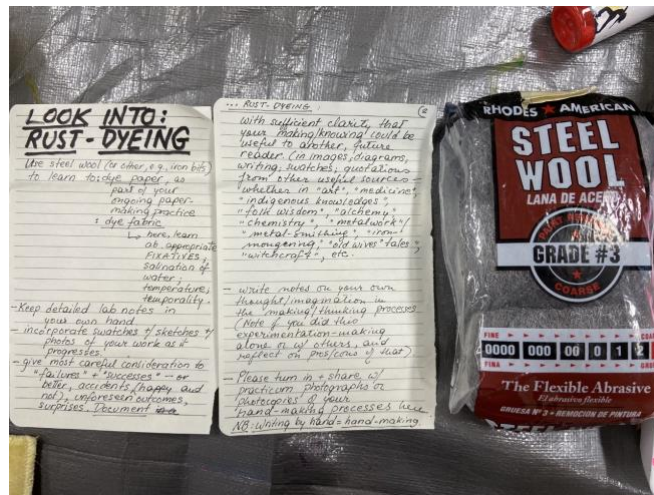 LOOK INTO:
RUST-DYEING
Use steel wool (or other, e.g., iron bits)
to learn to dye paper, as
part of your
ongoing paper-
making practice
& dye fabric
↳ here, learn
ab. appropriate
FIXATIVES,
salination of
water;
temperature;
temporality.
- Keep detailed lab notes in
your own hand
- incorporate swatches & sketches &
photos of your work as it
progresses.
- give most careful consideration to
"failures" + "successes" — or
better, accidents (happy and
not), unforeseen outcomes,
surprises. Document
... RUST-DYEING:
with sufficient clarity, that
your making/knowing could be
useful to another, future
reader (in images, diagrams,
writing, swatches, quotations
from other useful sources -
whether in "art", "medicine",
"indigenous knowledges",
"folk wisdom", "alchemy"
"chemistry", "metalwork"/
"metal-smithing", "iron-
mongering", "old wives' tales",
"witchcraft", etc.
- write notes on your own
thought/imagination in
the making/thinking processes
(Note if you did this
experimentation-making
alone or w/ others, and
reflect on pros/cons of that)
- Please turn in + share, w/
practicum, photographs or
photocopies of your
hand-making processes here
NB: writing by hand = hand-making
RHODES ★ AMERICAN
STEEL
WOOL
LANA DE ACE
GRADE #3
COARSE
FINE
0000 000 00 0 1 2
FINA
The Flexible Abrasive
El abrasivo flexible
GRUESA Nº 3 • REMOCION DE PINTURA